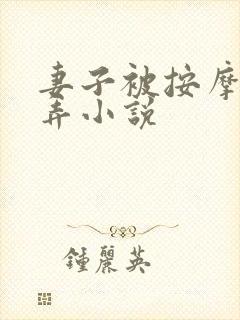 妻子被按摩
弄小说
鍾麗英